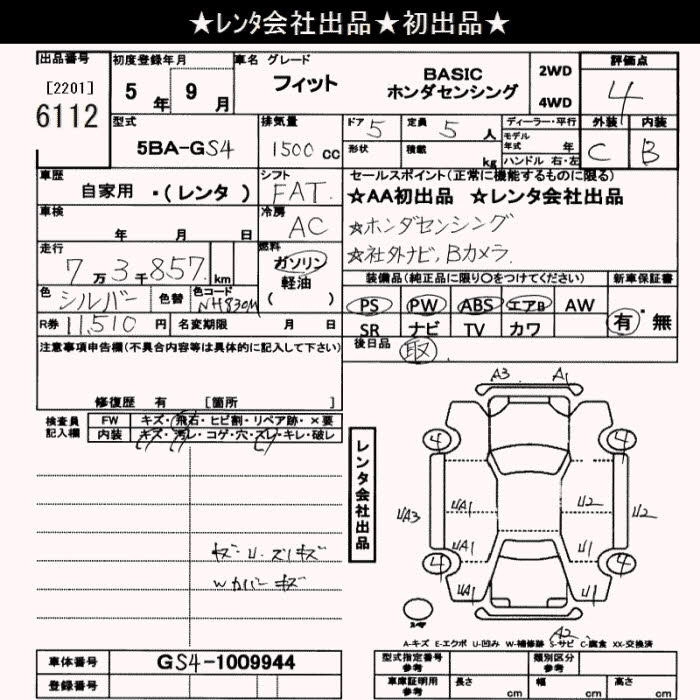 ★レンタ会社出品★初出品★
出品番号 初度登録年月 車名 グレード 評価点
[2201] 6112 5年 9月 フィット BASIC ホンダセンシング 2WD 4WD 4
型式 排気量 ドア 5 定員 5人 ディーラー・平行 外装 内装
5BA-GS4 1500cc 形状 積載 kg モデル年式 年 ハンドル 右・左 C B
車歴 シフト セールスポイント(正常に機能するものに限る)
自家用 ・(レンタ) FAT. ★AA初出品 ★レンタ会社出品
車検 冷房 ☆ホンダセンシング
年 月 日 AC ☆社外ナビ,Bカメラ.
走行 燃料 装備品(純正品に限り○をつけてください) 新車保証書
7万3千857km ガソリン 軽油 ( ) PS PW ABS エアB AW 有・無
色 シルバー 色替 色コード NH830M SR ナビ TV カワ
R券 11,510円 名変期限 月 日 後日品 取
注意事項申告欄(不具合内容等は具体的に記入して下さい)
修復歴 有 [箇所 ]
検査員記入欄 FW キズ・飛石・ヒビ割・リペア跡・×要
内装 キズ・汚レ・コゲ・穴・ズレ・キレ・破レ
レンタ会社出品
A3 A1
4 4
UA3 UA1 U2 U2
UA1 U1
4 4
UA1 U1
キズ・U.ズリキズ
Wカバーキズ
A2
A-キズ E-エクボ U-凹み W-補修跡 S-サビ C-腐食 XX-交換済
車体番号 GS4-1009944 型式指定番号 参考 類別区分 参考
登録番号 車庫証明用 参考 長さ cm 幅 cm 高さ cm